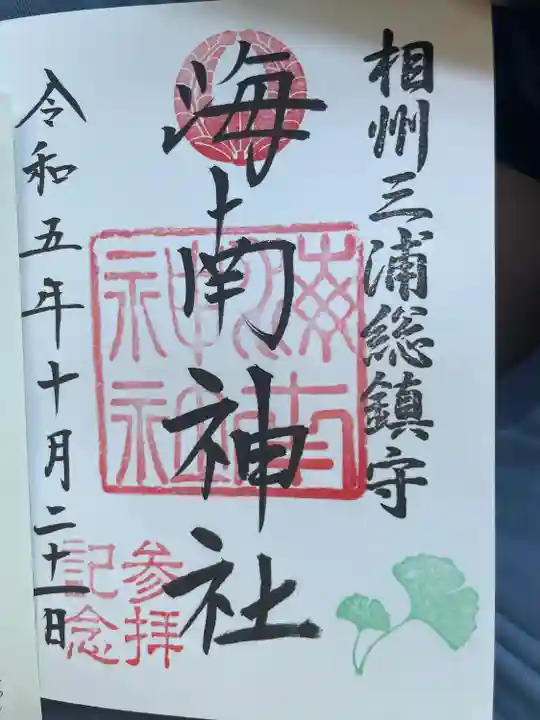 相州三浦総鎮守
海南神社
海南
神社
参拝
記念
令和五年十月二十一日